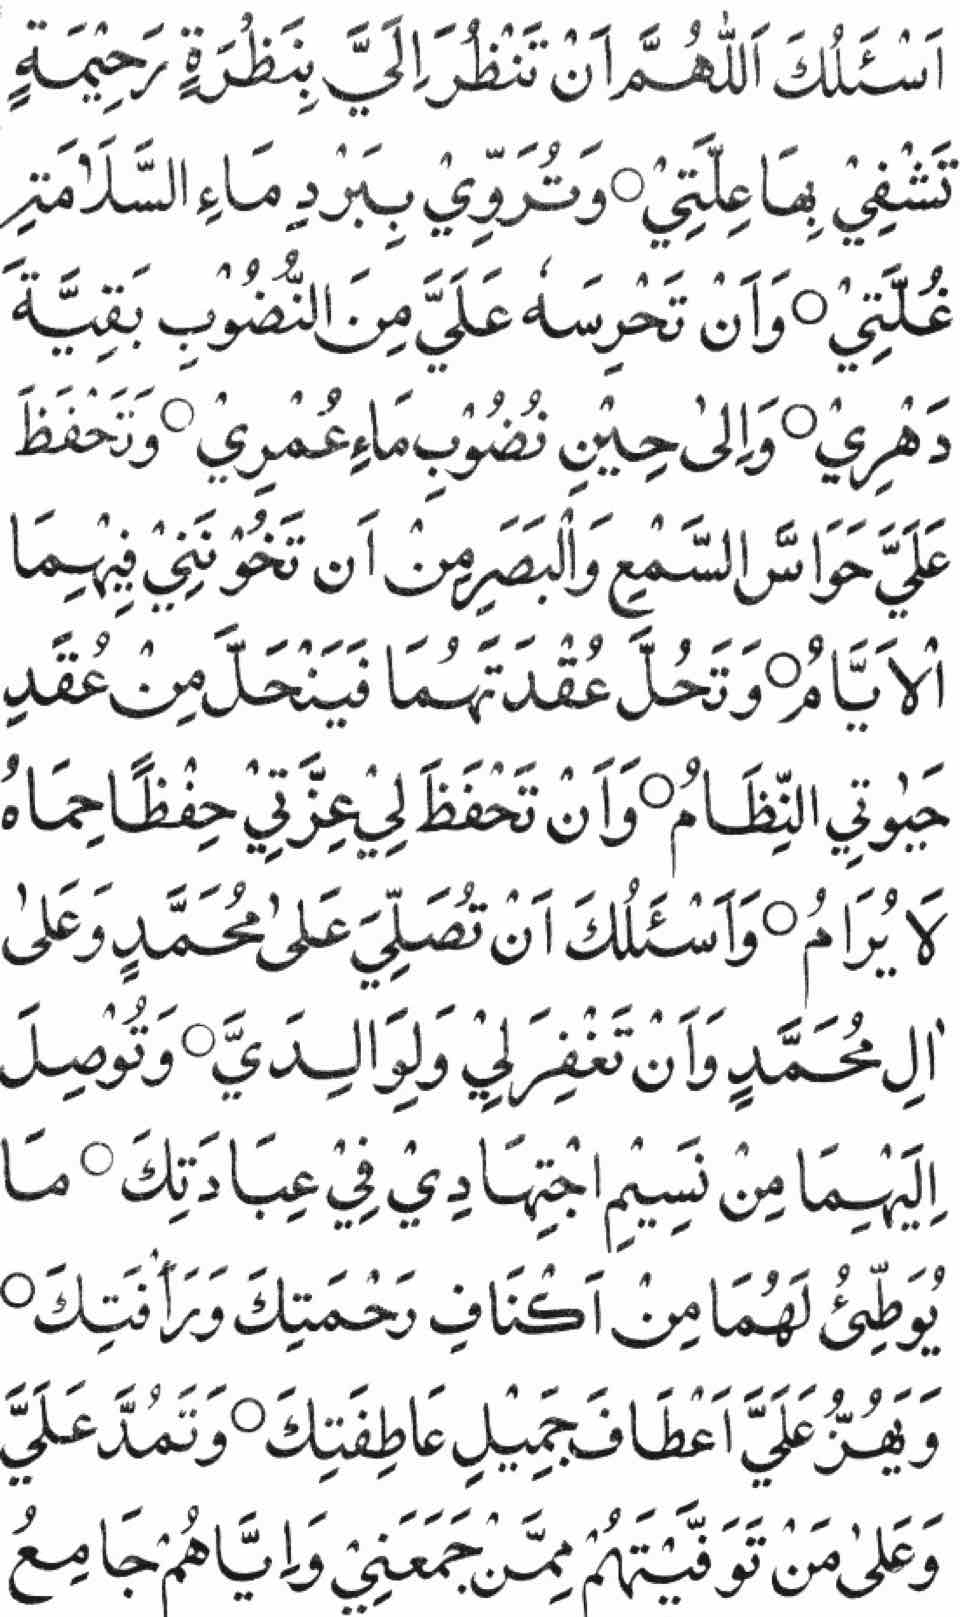 اَسْئَلُكَ اَللّٰهُمَّ اَنْ تَنْظُرَ اِلَيَّ بِنَظْرَةٍ رَحِيْمَةٍ
تَشْفِيْ بِهَا عِلَّتِيْ ○ وَتُرَوِّيْ بِبَرْدِ مَاءِ السَّلَامَةِ
غُلَّتِيْ ○ وَاَنْ تَحْرِسَهٗ عَلَيَّ مِنَ النُّضُوْبِ بَقِيَّةَ
دَهْرِيْ ○ وَاِلىٰ حِيْنِ نُضُوْبِ مَاءِ عُمْرِيْ ○ وَتَحْفَظَ
عَلَيَّ حَوَاسَّ السَّمْعِ وَالْبَصَرِ مِنْ اَن تَخُوْنَنِيْ فِيْهِمَا
الْاَيَّامُ ○ وَتَحُلَّ عُقْدَتَهُمَا فَيَنْحَلَّ مِنْ عُقَدِ
حَيٰوتِي النِّظَامُ ○ وَاَنْ تَحْفَظَ لِيْ عِزَّتِيْ حِفْظًا حِمَاهُ
لَا يُرَامُ ○ وَاَسْئَلُكَ اَنْ تُصَلِّيَ عَلىٰ مُحَمَّدٍ وَعَلىٰ
اٰلِ مُحَمَّدٍ وَاَنْ تَغْفِرَ لِيْ وَلِوَالِدَيَّ ○ وَتُوْصِلَ
اِلَيْهِمَا مِنْ نَسِيْمِ اجْتِهَادِيْ فِيْ عِبَادَتِكَ ○ مَا
يُوَطِّئُ لَهُمَا مِنْ اَكْنَافِ رَحْمَتِكَ وَرَأْفَتِكَ ○
وَيَهُزُّ عَلَيَّ اَعْطَافَ جَمِيْلِ عَاطِفَتِكَ ○ وَتَمُدَّ عَلَيَّ
وَعَلىٰ مَنْ تَوَفَّيْتَهُمْ مِمَّنْ جَمَعَنِيْ وَاِيَّاهُمْ جَامِعُ